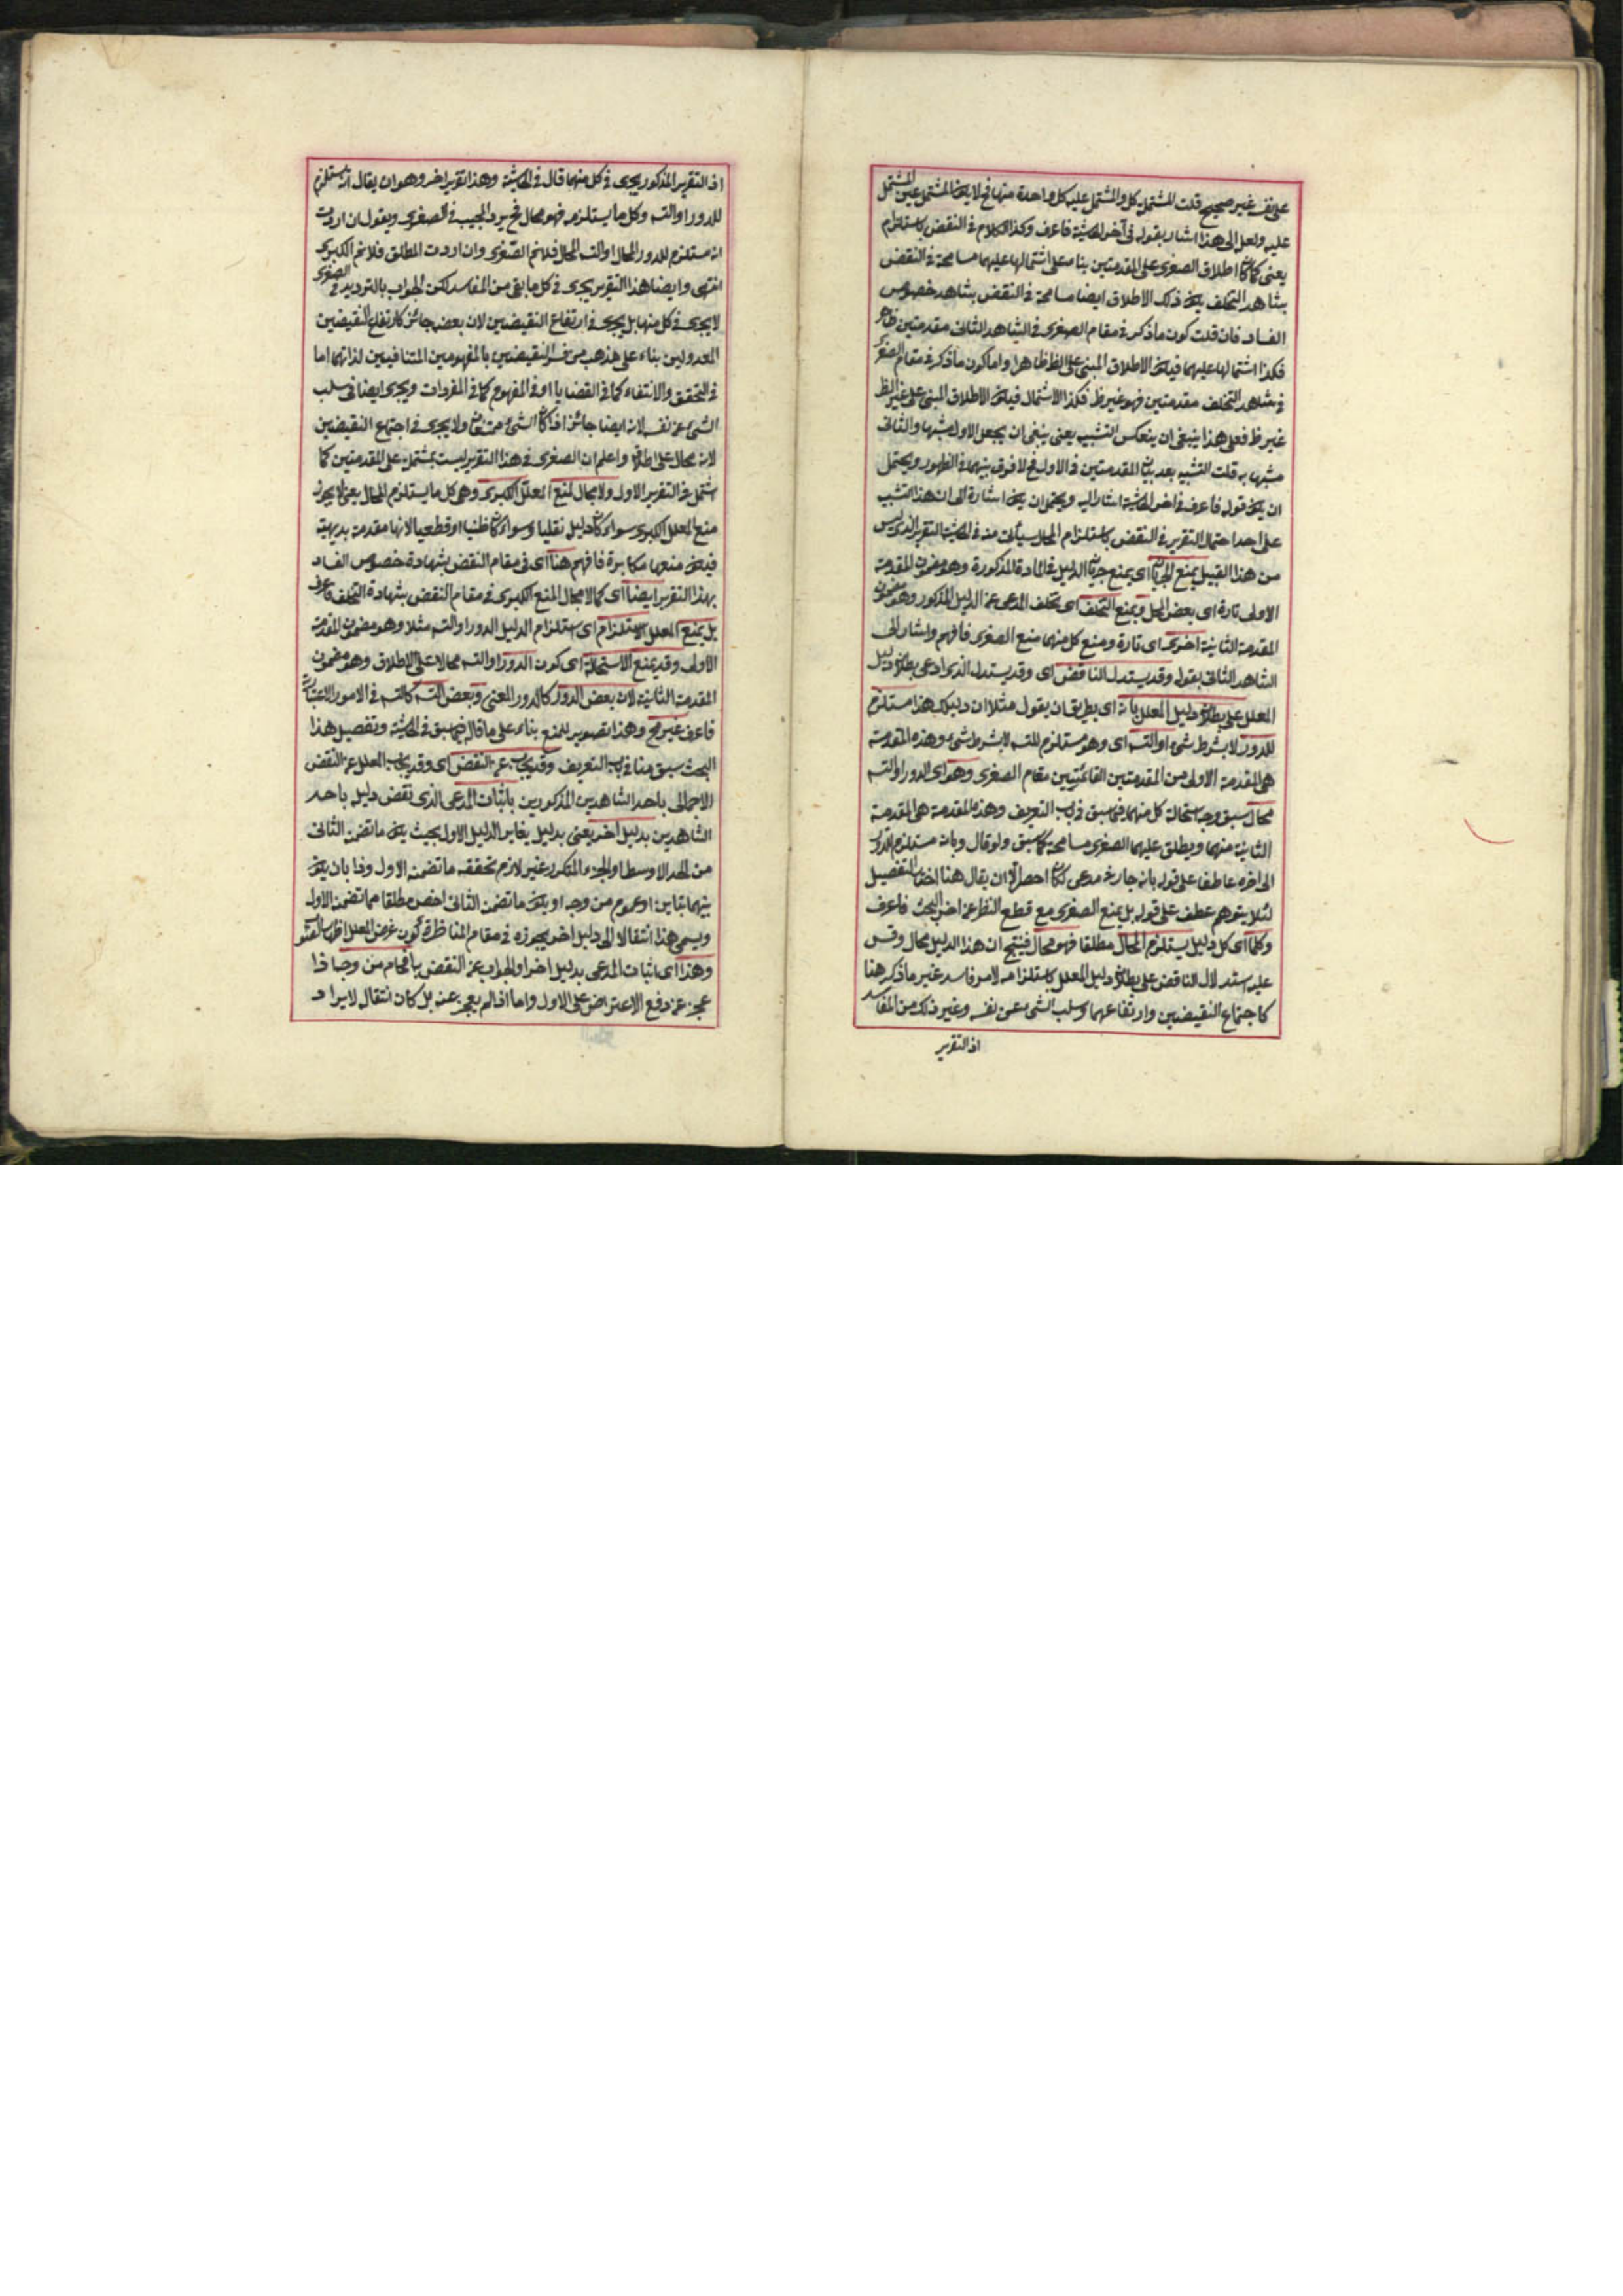 على نفسه غير صحيح قلت المشتمل كل والمشتمل عليه كل واحدة منها فح لا يكون المشتمل عين المشتمل
عليه ولعل الى هذا اشار بقوله فى آخر الحاشية فاعرف وكذا الكلام فى النقض باستلزام
يعنى كما كان اطلاق الصغرى على المقدمتين بناء على اشتمالها عليهما مسامحة فى النقض
بشاهد التخلف يكون ذلك الاطلاق ايضا مسامحة فى النقض بشاهد خصوص
الفساد فان قلت كون ما ذكر فى مقام الصغرى فى الشاهد الثانى مقدمتين ظاهر
فكذا اشتمالها عليهما فيكون الاطلاق المبنى على الظ ظاهرا واما كون ما ذكر فى مقام الصغرى
فى شاهد التخلف مقدمتين فهو غير ظ فكذا الاشتمال فيكون الاطلاق المبنى على غير الظ
غير ظ فعلى هذا ينبغى ان ينعكس التشبيه يعنى ينبغى ان يجعل الاول مشبها والثانى
مشبها به قلت التشبيه بعد بيان المقدمتين فى الاول فح لا فرق بينهما فى الظهور ويحتمل
ان يكون قوله فاعرف فى اخر الحاشية اشار اليه ويحتمل ان يكون اشارة الى ان هذا التشبيه
على احد احتمال التقرير فى النقض باستلزام المحال سيأتى منه فى الحاشية التقرير الذى ليس
من هذا القبيل يمنع الجريان اى يمنع جريان الدليل فى المادة المذكورة وهو مضمون المقدمة
الاولى تارة اى بعض المحل ويمنع التخلف اى تخلف المدعى عن الدليل المذكور وهو مضمون
المقدمة الثانية اخرى اى تارة ومنع كل منهما منع الصغرى فافهم واشار الى
الشاهد الثانى بقوله وقد يستدل الناقض اى وقد يستدل الذى ادعى بطلان دليل
المعلل على بطلان دليل المعلل بانه اى بطريق ان يقول مثلا ان دليلك هذا مستلزم
للدور لا بشرط شئ او التسه اى وهو مستلزم للتسه لا بشرط شئ وهذه المقدمة
هى المقدمة الاولى من المقدمتين القائمتين مقام الصغرى وهو اى الدور او التسه
محال سبق وجه استحالة كل منهما فيما سبق فى باب التعريف وهذه المقدمة هى المقدمة
الثانية منهما ويطلق عليهما الصغرى مسامحة كما سبق ولو قال وبانه مستلزم للدور
الى اخره عاطفا على قوله بانه جار فى مدعى لكان احصر الا ان يقال هنا التفصيل
لئلا يتوهم عطف على قوله بل يمنع الصغرى مع قطع النظر عن اخر البحث فاعرف
وكلما اى كل دليل يستلزم المحال مطلقا فهو محال فينتج ان هذا الدليل محال وقس
عليه استدلال الناقض على بطلان دليل المعلل باستلزامه لامر فاسد غير ما ذكر هنا
كاجتماع النقيضين وارتفاعهما وسلب الشئ عن نفسه وغير ذلك من المفاسد
اذ التقرير
اذ التقرير المذكور يجرى فى كل منهما قال فى الحاشية وهذا تقرير اخر وهو ان يقال انه مستلزم
للدور او التسه وكل ما يستلزمه فهو محال فح يرد المجيب فى الصغرى ويقول ان اردت
انه مستلزم للدور المحال او التسه المحال فلا نم الصغرى وان اردت المطلق فلا نم الكبرى
انتهى وايضا هذا التقرير يجرى فى كل ما بقى من المفاسد لكن الجواب بالترديد فى الصغرى
لا يجرى فى كل منها بل يجرى فى ارتفاع النقيضين لان بعضه جائز كارتفاع النقيضين
المعدولين بناء على مذهب من فسر النقيضين بالمفهومين المتنافيين لذاتهما اما
فى التحقق والانتفاء كما فى القضايا او فى المفهوم كما فى المفردات ويجرى ايضا فى سلب
الشئ عن نفسه لانه ايضا جائز اذا كان الشئ ولا يجرى فى اجتماع النقيضين
لانه محال على اطلاقه واعلم ان الصغرى فى هذا التقرير ليست بمشتملة على المقدمتين كما
اشتمل فى التقرير الاول ولا مجال لمنع المعلل الكبرى وهى كل ما يستلزم المحال يعنى لا يجوز
منع المعلل الكبرى سواء كان دليله نقليا وسواء كان ظنيا او قطعيا لانها مقدمة بديهية
فيكون منعها مكابرة فافهم هنا اى فى مقام النقض بشهادة خصوص الفساد
بهذا التقرير ايضا اى كما لا مجال لمنع الكبرى فى مقام النقض بشهادة التخلف فاعرف
بل يمنع المعلل الاستلزام اى استلزام الدليل الدور او التسه مثلا وهو مضمون المقدمة
الاولى وقد يمنع الاستحالة اى كون الدور او التسه محالا على الاطلاق وهو مضمون
المقدمة الثانية لان بعض الدور كالدور المعى وبعض التسه كالتسه فى الامور الاعتبارية
فاعرف غير مح وهذا تصوير للمنع بناء على ما قاله فيما سبق فى الحاشية وتفصيل هذا
البحث سبق منا فى باب التعريف وقد يجاب عن النقض اى وقد يجاب المعلل عن النقض
الاجمالى باحد الشاهدين المذكورين باثبات المدعى الذى نقض دليله باحد
الشاهدين بدليل اخر يعنى بدليل يغاير الدليل الاول بحيث يكون ما تضمن الثانى
من الحد الاوسط او الجزء المتكرر غير لازم تحققه ما تضمنه الاول وذا بان يكون
بينهما تباين او عموم من وجه او يكون ما تضمن الثانى اخص مطلقا مما تضمن الاول
ويسمى هذا انتقالا الى دليل اخر يجوزه فى مقام المناظرة كون غرض المعلل اظهار
وهذا اى اثبات المدعى بدليل اخر او الجواب عن النقض به افحام من وجه اذا
عجز عن دفع الاعتراض على الاول واما اذا لم يعجز عنه بل كان انتقاله لايراد